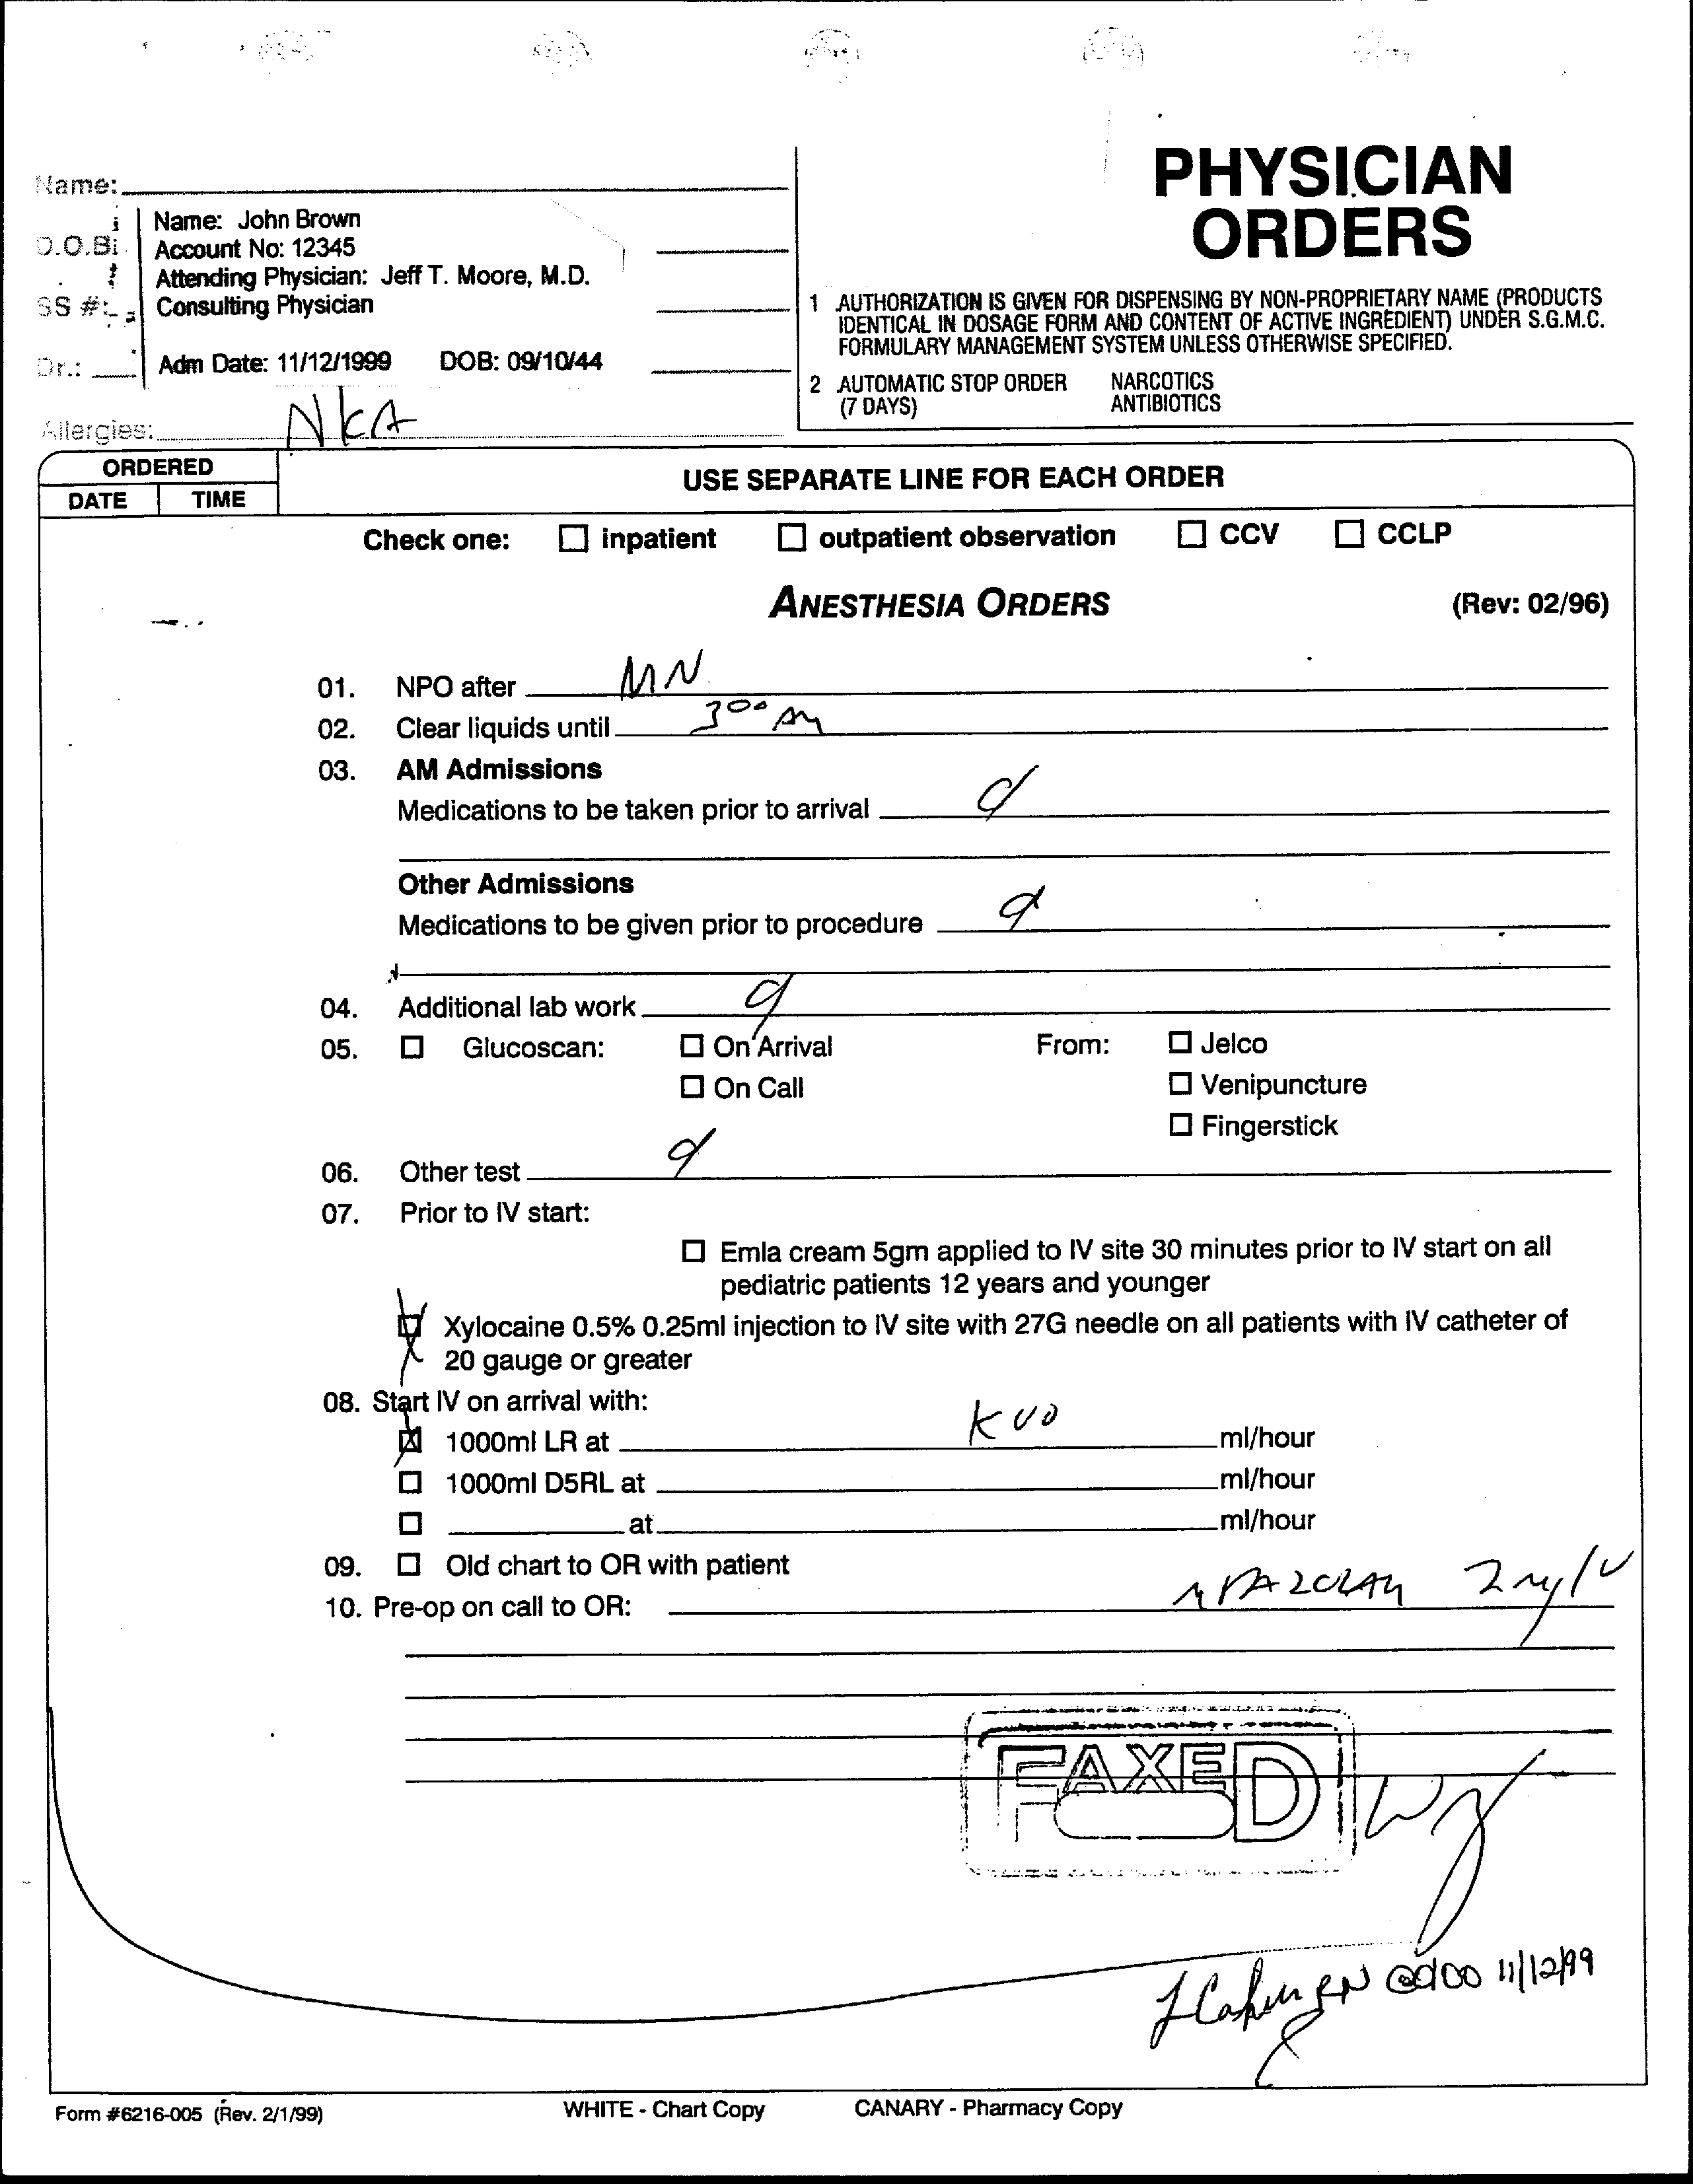 PHYSICIAN
ORDERS
Name:
Name: John Brown
D.O.B
Account No: 12345
Attending Physician: Jeff T. Moore, M.D.
SS #:
Consulting Physician
Dr.:
Adm Date: 11/12/1999 DOB: 09/10/44
Allergies: NKA
1 AUTHORIZATION IS GIVEN FOR DISPENSING BY NON-PROPRIETARY NAME (PRODUCTS
IDENTICAL IN DOSAGE FORM AND CONTENT OF ACTIVE INGREDIENT) UNDER S.G.M.C.
FORMULARY MANAGEMENT SYSTEM UNLESS OTHERWISE SPECIFIED.
2 AUTOMATIC STOP ORDER NARCOTICS
(7 DAYS) ANTIBIOTICS
ORDERED
DATE TIME
USE SEPARATE LINE FOR EACH ORDER
Check one: inpatient outpatient observation CCV CCLP
ANESTHESIA ORDERS (Rev: 02/96)
01. NPO after MN
02. Clear liquids until 300 AM
03. AM Admissions
Medications to be taken prior to arrival
Other Admissions
Medications to be given prior to procedure
04. Additional lab work
05. Glucoscan: On Arrival From: Jelco
On Call Venipuncture
Fingerstick
06. Other test
07. Prior to IV start:
Emla cream 5gm applied to IV site 30 minutes prior to IV start on all
pediatric patients 12 years and younger
Xylocaine 0.5% 0.25ml injection to IV site with 27G needle on all patients with IV catheter of
20 gauge or greater
08. Start IV on arrival with:
1000ml LR at KVO ml/hour
1000ml D5RL at ml/hour
at ml/hour
09. Old chart to OR with patient
10. Pre-op on call to OR:
FAXED
RN 11/12/99
Form #6216-005 (Rev. 2/1/99) WHITE - Chart Copy CANARY - Pharmacy Copy